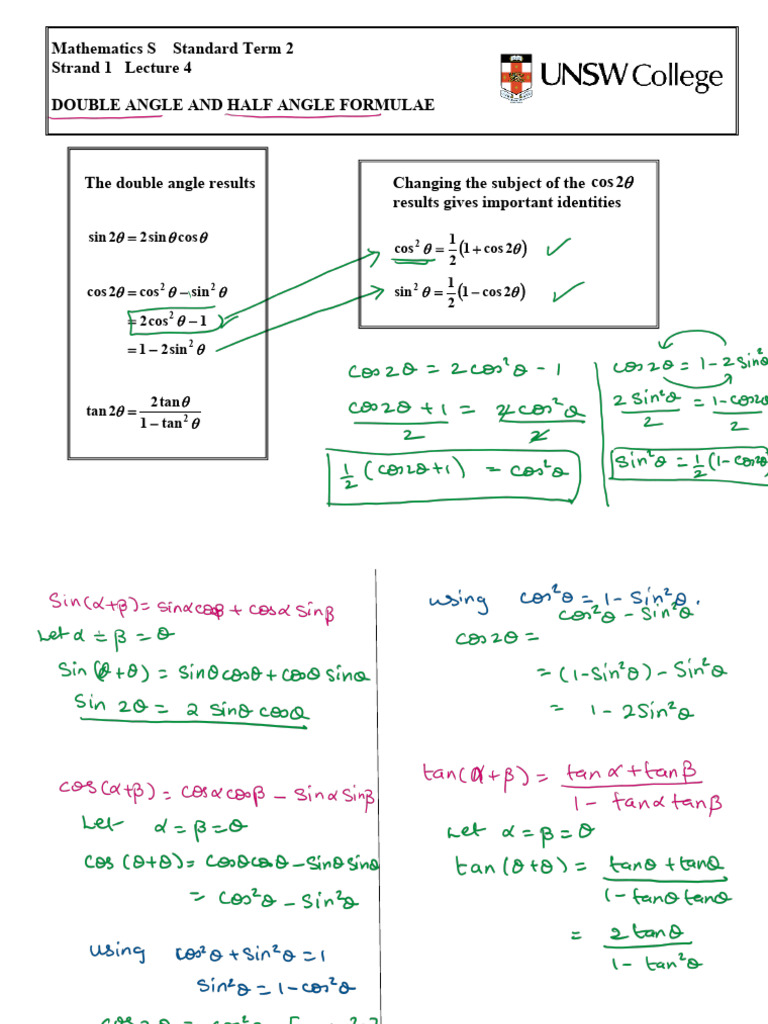 Mathematics S Standard Term 2
Strand 1 Lecture 4
DOUBLE ANGLE AND HALF ANGLE FORMULAE
UNSW College
The double angle results
sin 2θ = 2 sin θ cos θ
cos 2θ = cos² θ − sin² θ
= 2 cos² θ − 1
= 1 − 2 sin² θ
tan 2θ = 2 tan θ / 1 − tan² θ
Changing the subject of the cos 2θ
results gives important identities
cos² θ = 1/2 (1 + cos 2θ) ✓
sin² θ = 1/2 (1 − cos 2θ) ✓
cos2θ = 2cos²θ − 1
cos2θ + 1 / 2 = 2cos²θ / 2
1/2 (cos2θ+1) = cos²θ
cos2θ = 1 − 2 sin²θ
2 sin²θ / 2 = 1 − cos2θ / 2
sin²θ = 1/2 (1 − cos2θ)
Sin(α+β) = sinαcosβ + cosα sinβ
Let α = β = θ
Sin (θ+θ) = sinθcosθ + cosθ sinθ
Sin 2θ = 2 sinθ cosθ
cos(α+β) = cosαcosβ − sinα sinβ
Let α = β = θ
cos (θ+θ) = cosθcosθ − sinθ sinθ
= cos²θ − sin²θ
using cos²θ + sin²θ = 1
sin²θ = 1 − cos²θ
using cos²θ = 1 − sin²θ.
cos2θ = cos²θ − sin²θ
= (1−sin²θ) − sin²θ
= 1 − 2sin²θ
tan(α+β) = tanα + tanβ / 1 − tanα tanβ
Let α = β = θ
tan(θ+θ) = tanθ + tanθ / 1 − tanθ tanθ
= 2 tanθ / 1 − tan²θ